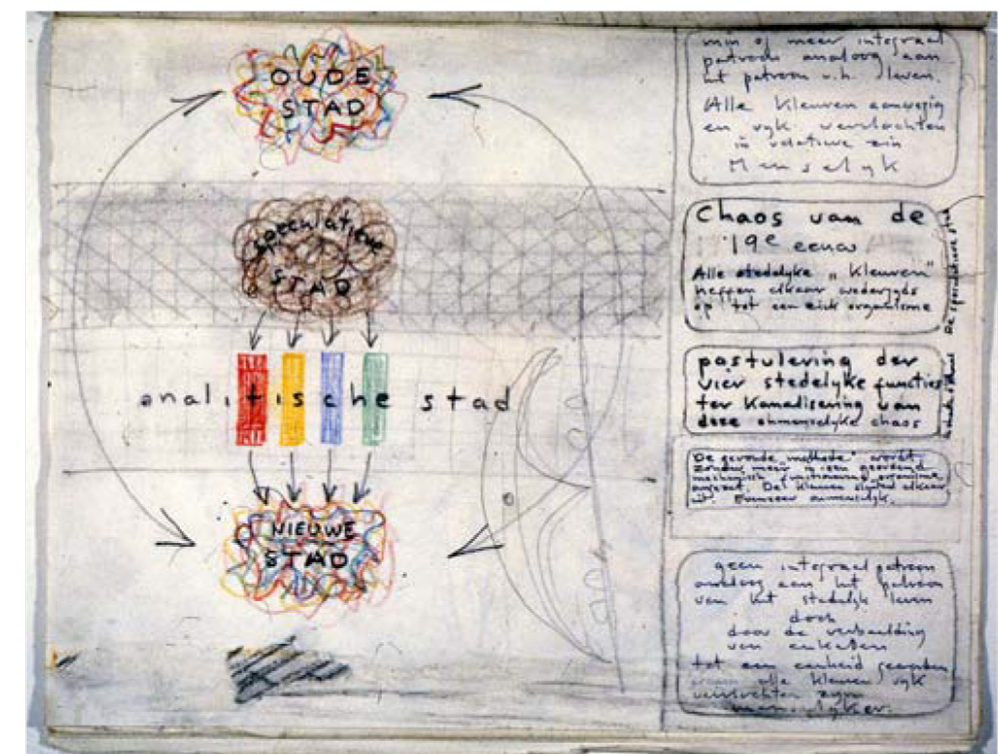 OUDE
STAD
speculatieve
STAD
analitische stad
NIEUWE
STAD
min of meer integraal
patroon analoog aan
het patroon v.h. leven.
Alle kleuren aanwezig
en ryk
in relatieve zin
Menselyk
Chaos van de
19e eeuw
Alle stedelyke „kleuren"
heffen elkaar wederzyds
op tot een ziek organisme
De speculatieve stad
postulering der
vier stedelyke functies
ter Kanalisering van
deze onmenselyke chaos
De „methode" wordt
zonder meer in een
mechanisch functionerend organisme
omgezet. De kleuren sluiten elkaar
uit. Evenzeer onmenselyk.
geen integraal patroon
analoog aan het patroon
van het stedelyk leven
doch
door de verbeelding
van
tot een eenheid geworden
alle kleuren ryk
zyn
menselyker.